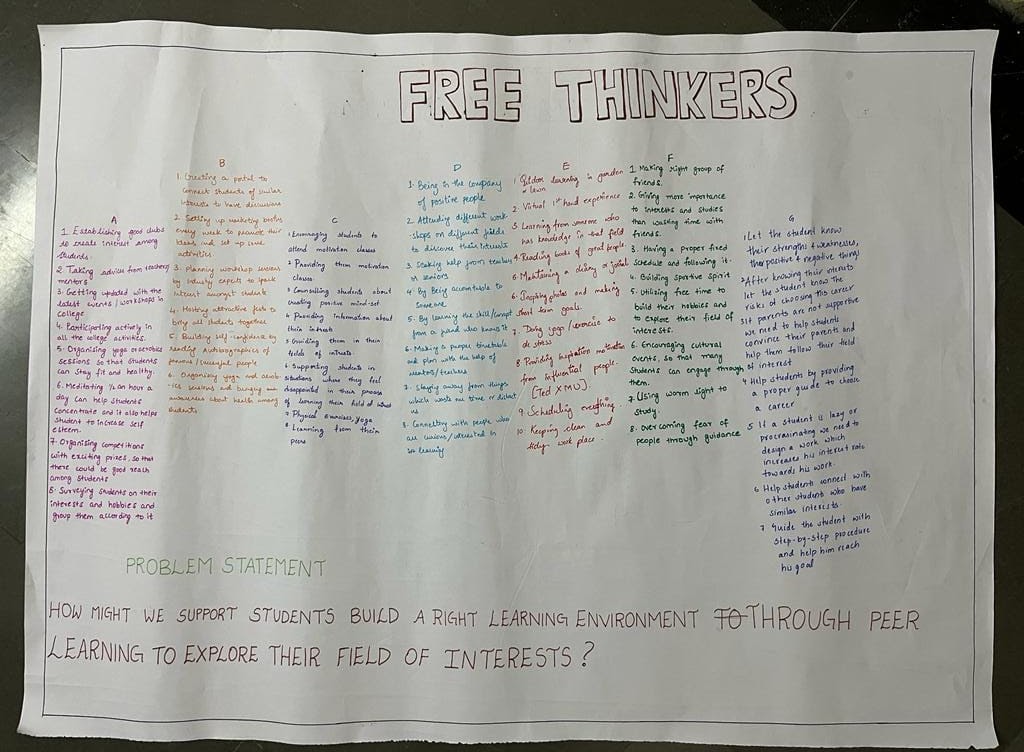 FREE THINKERS
A
1. Establishing good clubs
to create interest among
students.
2. Taking advice from teachers/
mentors
3. Getting updated with the
latest events / workshops in
college
4. Participating actively in
all the college activities.
5. Organising yoga or aerobics
sessions so that students
can stay fit and healthy.
6. Meditating ½ an hour a
day can help students
concentrate and it also helps
student to increase self
esteem.
7. Organising competitions
with exciting prizes, so that
there could be good reach
among students
8. Surveying students on their
interests and hobbies and
group them according to it
B
1. Creating a portal to
connect students of similar
interests to have discussions
2. Setting up marketing booths
every week to promote their
ideas and set up
activities
3. Planning workshop sessions
by industry experts to spark
interest amongst students
4. Hosting attractive fests to
bring all students together
5. Building self-confidence by
reading Autobiographies of
famous / successful people
6. Organising yoga and aerob
-ics sessions and bringing
awareness about health among
students
C
1. Encouraging students to
attend motivation classes
2. Providing them motivation
classes
3. Counselling students about
creating positive mind-set
4. Providing information about
their intrests
5. Guiding them in their
fields of intrests
6. Supporting students in
situations where they feel
disappointed in their process
of learning their field of
7. Physical exercises, yoga
8. Learning from their
peers
D
1. Being in the company
of positive people
2. Attending different work
-shops on different fields
to discover their interests
3. Seeking help from teachers
or seniors
4. By Being accountable to
someone
5. By learning the skill/concept
from a friend who knows it
6. Making a proper timetable
and plan with the help of
mentors/teachers
7. Staying away from things
which waste our time or distract
us
8. Connecting with people who
are curious/interested in
learning
E
1. Outdoor learning in garden
or lawn
2. Virtual 1st hand experience
3. Learning from someone who
has knowledge in that field
4. Reading books of great people.
Maintaining a diary or jornal
6. photos and making
short term goals.
7. Doing yoga/exercise to
de stress
8. Providing inspiration motivation
from influential people.
[Ted X MU].
9. Scheduling everything.
10. Keeping clean and
tidy work place.
F
1. Making right group of
friends.
2. Giving more importance
to interests and studies
than wasting time with
friends.
3. Having a proper fixed
schedule and following it.
4. Building sportive spirit
5. Utilizing free time to
build their hobbies and
to explore their field of
interests.
6. Encouraging cultural
events, so that many
students can engage through
them.
7. Using worm sight to
study.
8. overcoming fear of
people through guidance
G
1 Let the student know
their strengths & weaknesses,
their positive & negative things
2 After knowing their interests
let the student know the
risks of choosing this career
3 If parents are not supportive
we need to help students
convince their parents and
help them follow their field
of interest
4 Help students by providing
a proper guide to choose
a career
5 If a student is lazy or
procrasinating we need to
design a work which
increases his interest rate
towards his work.
6 Help students connect with
other student who have
similar interests.
7 Guide the student with
step-by-step procedure
and help him reach
his goal
PROBLEM STATEMENT
HOW MIGHT WE SUPPORT STUDENTS BUILD A RIGHT LEARNING ENVIRONMENT TO THROUGH PEER
LEARNING TO EXPLORE THEIR FIELD OF INTERESTS?